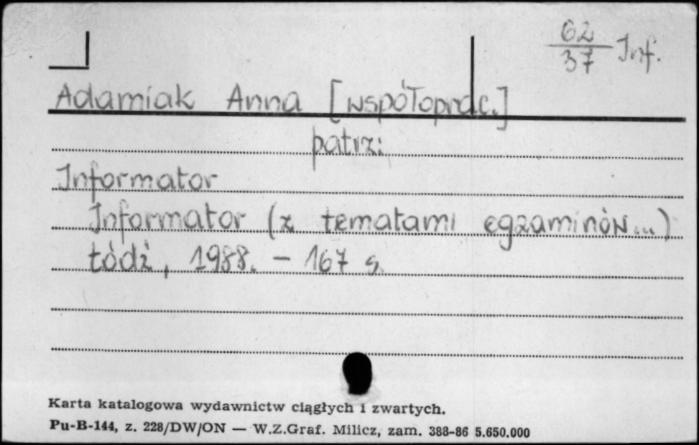 62
37 Inf.
Adamiak Anna [współoprac.]
patrz:
Informator
Informator (z tematami egzaminów...)
Łódź, 1988. - 167 s.
Karta katalogowa wydawnictw ciągłych i zwartych.
Pu-B-144, z. 228/DW/ON — W.Z.Graf. Milicz, zam. 388-86 5.650.000